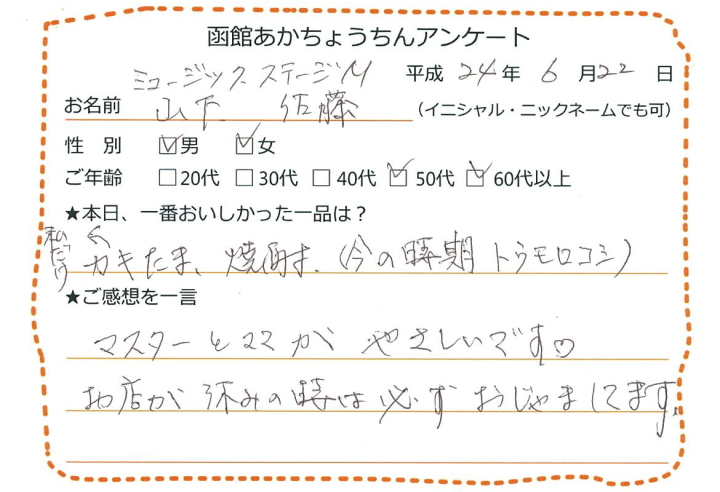 函館あかちょうちんアンケート
ミュージックステージM 平成24年6月22日
お名前 山下 佐藤 (イニシャル・ニックネームでも可)
性 別 ☑男 ☑女
ご年齢 □20代 □30代 □40代 ☑50代 ☑60代以上
★本日、一番おいしかった一品は？
私だけ
カキたま、焼酎も、(今の時期トウモロコシ)
★ご感想を一言
マスターとママがやさしいです♡
お店が休みの時は必ずおじゃましてます。